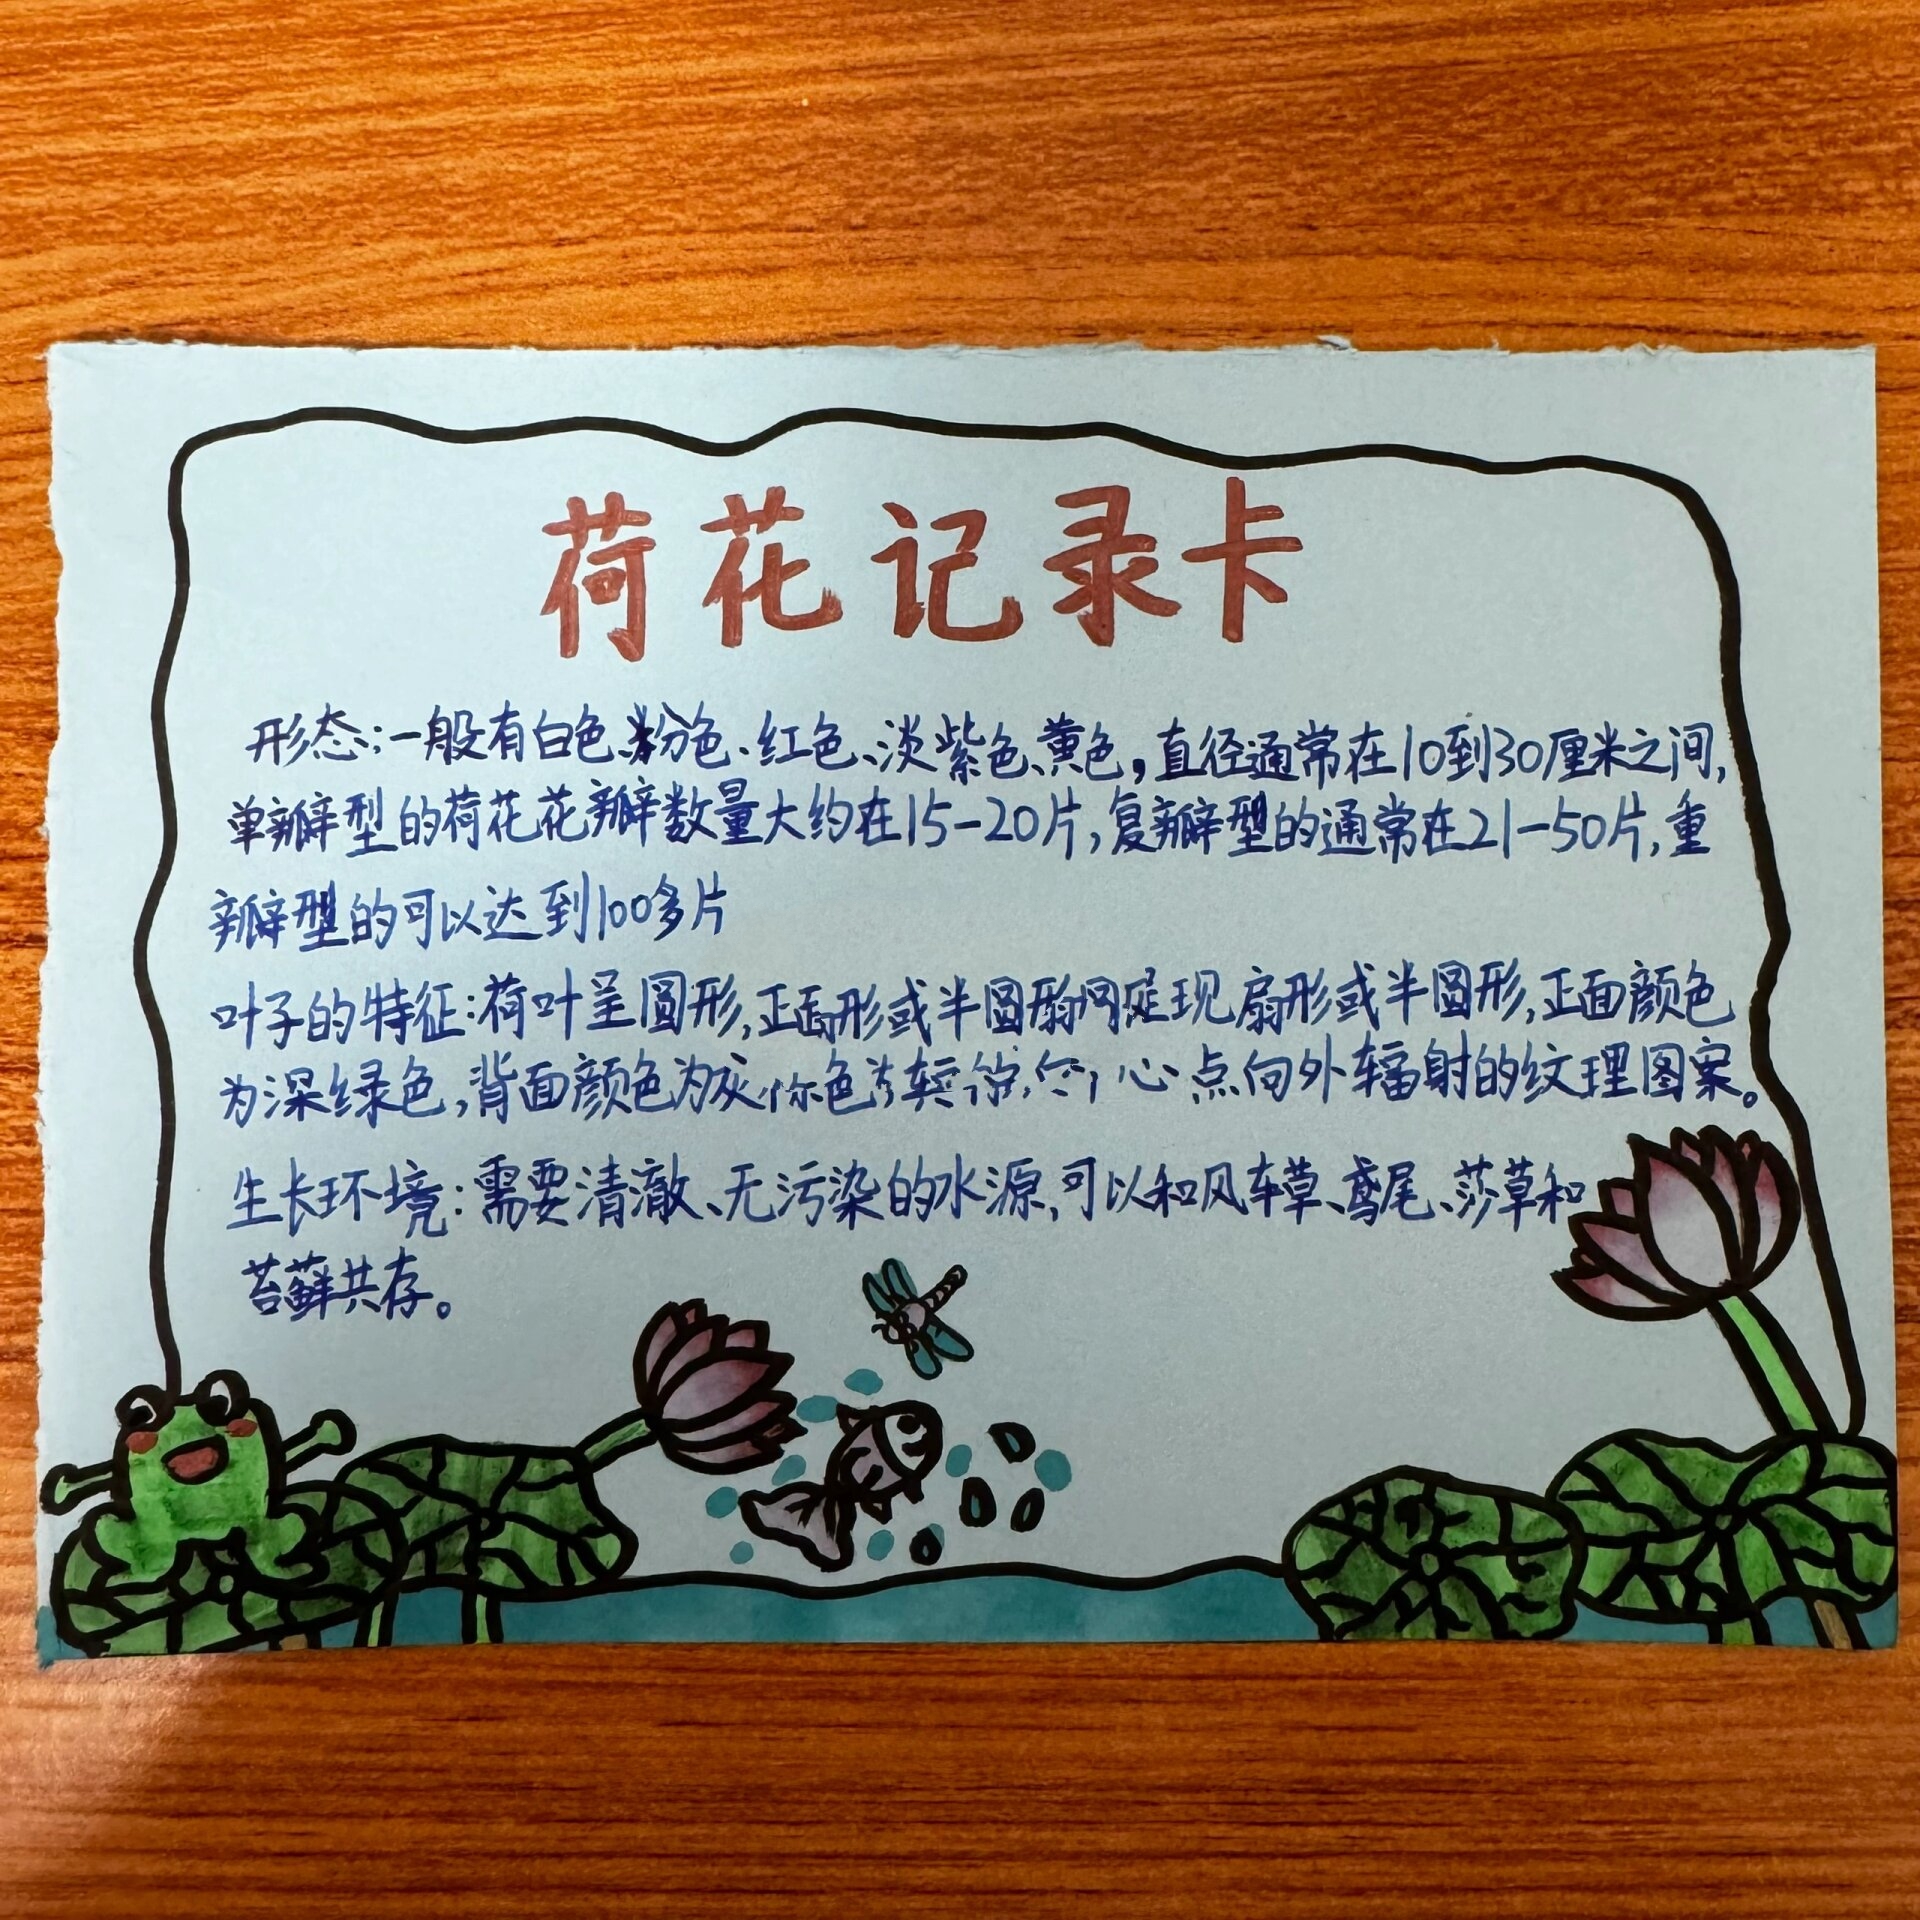 荷花记录卡
形态:一般有白色、粉色、红色、淡紫色、黄色,直径通常在10到30厘米之间,
单瓣型的荷花花瓣数量大约在15-20片,复瓣型的通常在21-50片,重
瓣型的可以达到100多片
叶子的特征:荷叶呈圆形,正面形或半圆形 现扇形或半圆形,正面颜色
为深绿色,背面颜色为灰 色 心点向外辐射的纹理图案。
生长环境:需要清澈、无污染的水源,可以和风车草、鸢尾、莎草和
苔藓共存。